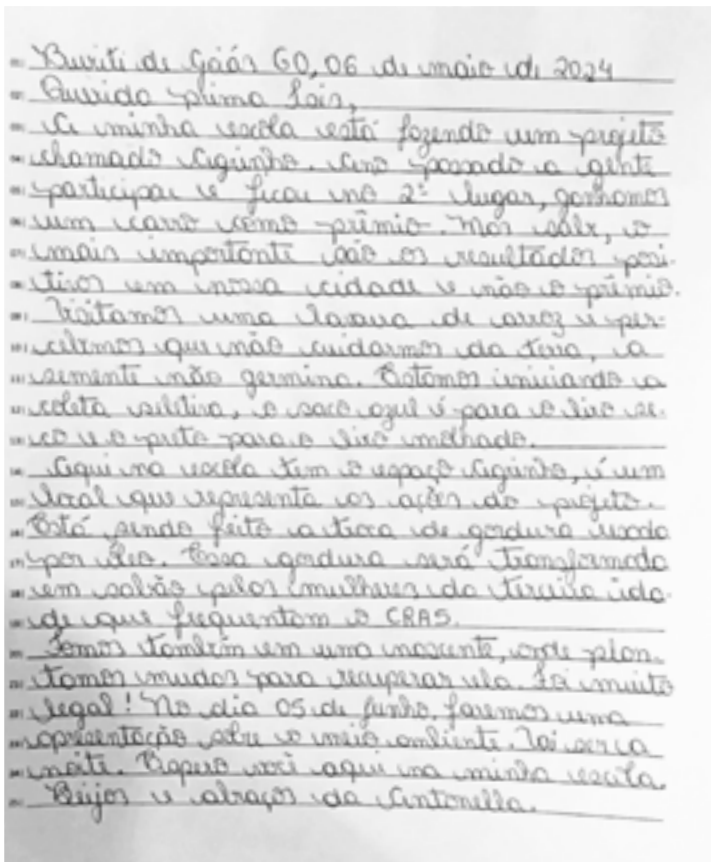 Buriti de Goiás GO, 06 de maio de 2024
Querida prima Laís,
A minha escola está fazendo um projeto
chamado Agrinho. Ano passado a gente
participou e ficou no 2º lugar, ganhamos
um carro como prêmio. Mas sabe, o
mais importante são os resultados posi-
tivos em nossa cidade e não o prêmio.
Visitamos uma lavoura de arroz e per-
cebemos que não cuidarmos da terra, a
semente não germina. Estamos iniciando a
coleta seletiva, o saco azul é para o lixo se-
co e o preto para o lixo molhado.
Aqui na escola tem o espaço Agrinho, é um
local que representa as ações do projeto.
Está sendo feito a troca de gordura usada
por óleo. Essa gordura será transformada
em sabão pelas mulheres da terceira ida-
de que frequentam o CRAS.
Fomos também em uma nascente, onde plan-
tamos mudas para recuperar ela. Foi muito
legal! No dia 05 de junho, faremos uma
apresentação sobre o meio ambiente. Vai ser a
noite. Espero você aqui na minha escola.
Beijos e abraços da Antonella.